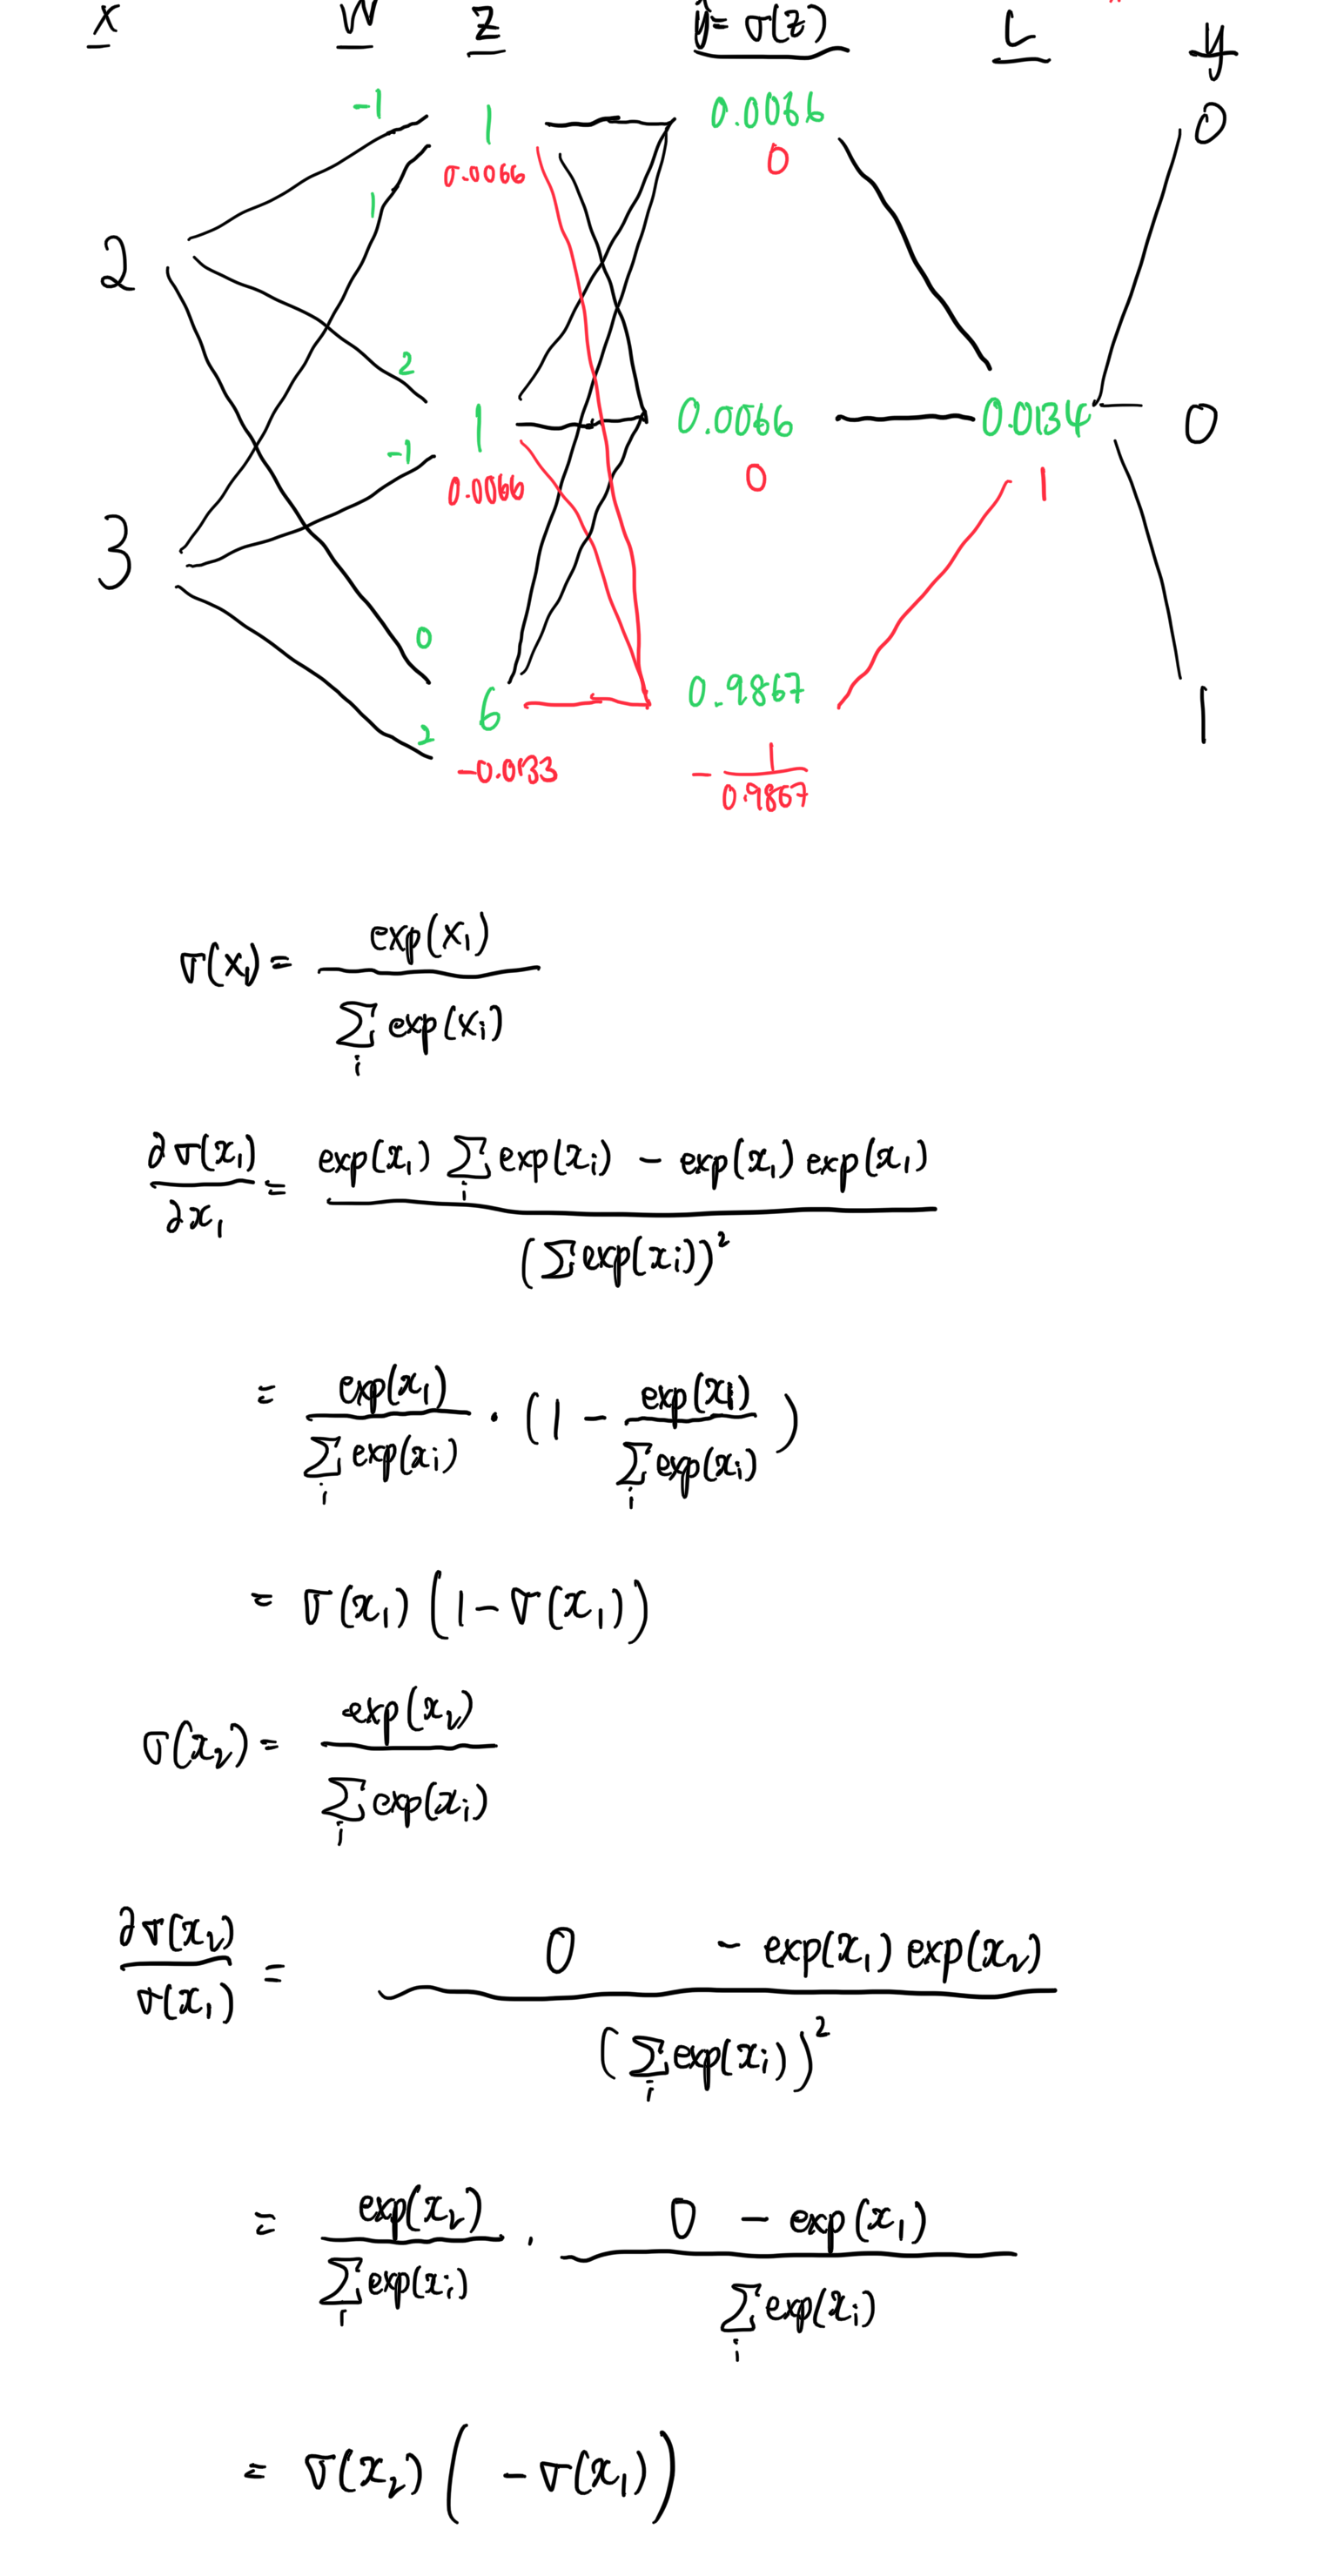 x W z ŷ = σ(z) L y
-1 1 0.0066 0
0.0066 0
1
2
2
1 0.0066 0.0134 0
-1
0.0066 0 1
3
0
6 0.9867 1
2
-0.0133 - 1/0.9867
σ(x₁) = exp(x₁) / Σᵢ exp(xᵢ)
∂σ(x₁)/∂x₁ = (exp(x₁) Σᵢ exp(xᵢ) - exp(x₁) exp(x₁)) / (Σ exp(xᵢ))²
= exp(x₁) / Σᵢ exp(xᵢ) · (1 - exp(x₁) / Σᵢ exp(xᵢ))
= σ(x₁) (1 - σ(x₁))
σ(x₂) = exp(x₂) / Σᵢ exp(xᵢ)
∂σ(x₂)/σ(x₁) = (0 - exp(x₁) exp(x₂)) / (Σᵢ exp(xᵢ))²
= exp(x₂) / Σᵢ exp(xᵢ) · (0 - exp(x₁)) / Σᵢ exp(xᵢ)
= σ(x₂) ( - σ(x₁))